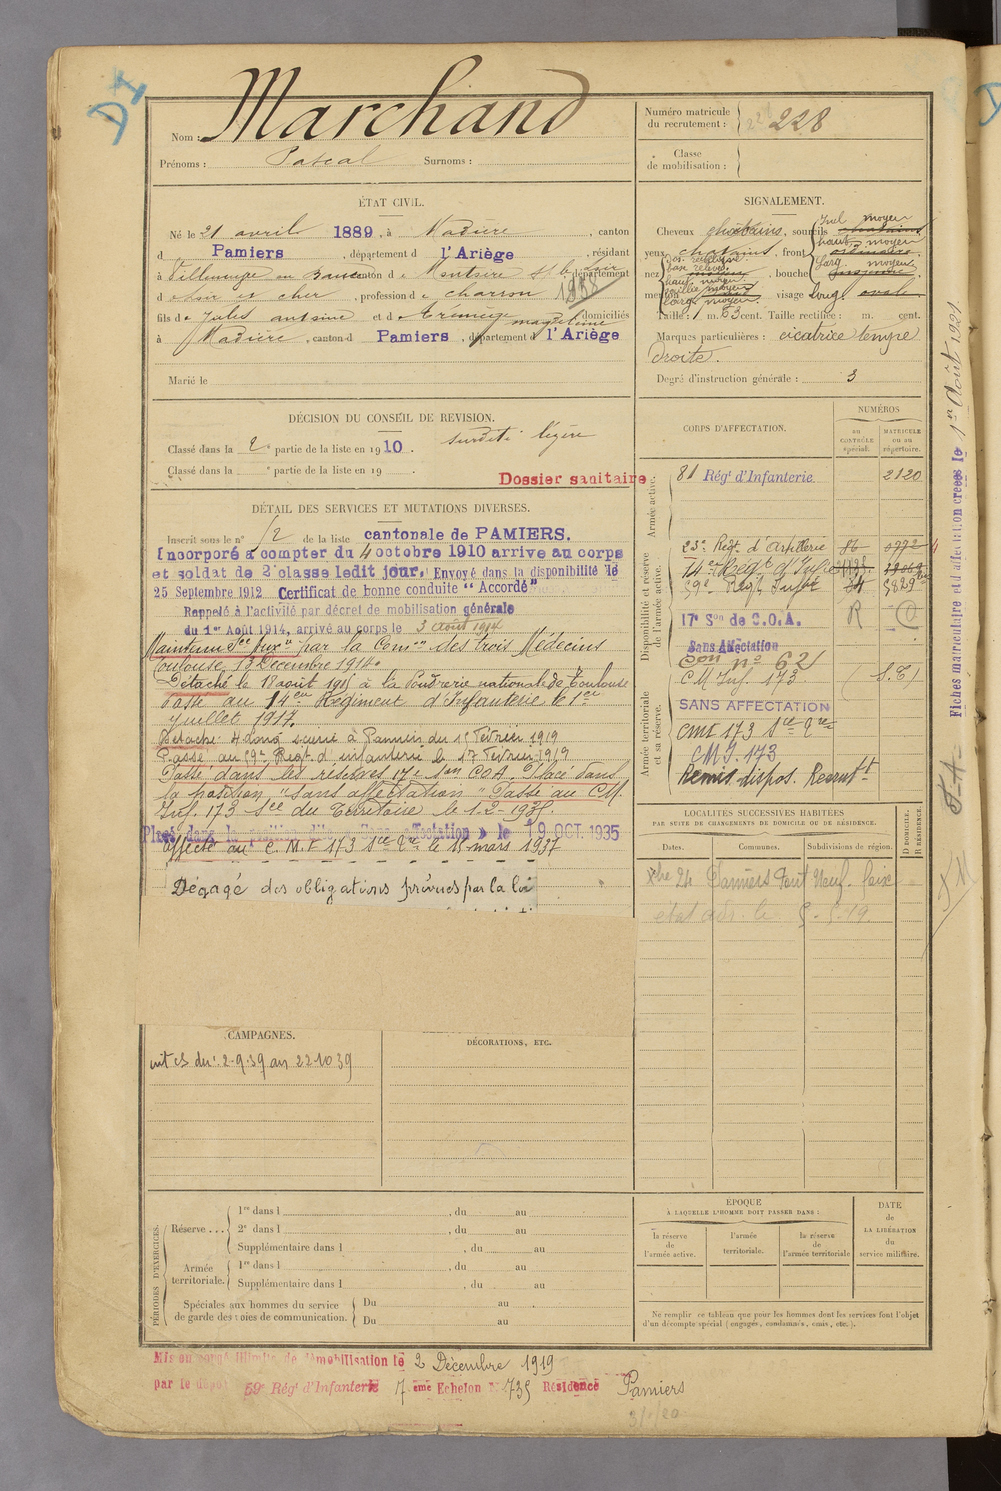 Nom : Marchand
Prénoms : Pascal Surnoms :
Numéro matricule
du recrutement : 228
Classe
de mobilisation :
ÉTAT CIVIL.
Né le 21 avril 1889, à Madière, canton
d Pamiers, département d l'Ariège, résidant
à Villeneuve en canton d e Montsère département
d e Loir et cher, profession d e charron 1938
fils d e Jules antoine et d e magdeleine domiciliés
à Madière, canton d Pamiers, département d l'Ariège
Marié le
SIGNALEMENT.
Cheveux châtains, sourcils
yeux chatains, front haut. moyen ordinaire
nez, bouche
menton visage long ovale
Taille : 1 m. 63 cent. Taille rectifiée : m. cent.
Marques particulières : cicatrice tempe
droite.
Degré d'instruction générale : 3
DÉCISION DU CONSEIL DE REVISION.
Classé dans la 2e partie de la liste en 1910. surdité légère
Classé dans la e partie de la liste en 19 .
Dossier sanitaire
DÉTAIL DES SERVICES ET MUTATIONS DIVERSES.
Inscrit sous le n° 52 de la liste cantonale de PAMIERS.
Incorporé à compter du 4 octobre 1910 arrivé au corps
et soldat de 2e classe ledit jour. Envoyé dans la disponibilité le
25 Septembre 1912 Certificat de bonne conduite "Accordé"
Rappelé à l'activité par décret de mobilisation générale
du 1er Août 1914, arrivé au corps le 3 août 1914
Maintenu Sce Aux" par la Comon des trois Médecins
Toulouse, 13 Décembre 1914.
Détaché le 18 août 1915 à la Poudrerie nationale de Toulouse
Passé au 14eme Régiment d'Infanterie le 1er
juillet 1917.
Détaché à Pamiers du 1er Février 1919
Passé au 59e Regt d'infanterie le 17 Février 1919
Passé dans les réserves 17e Son COA. Placé dans
la position "sans affectation" Passé au CM.
Inf. 173 Sce du Territoire le 1-2-1935.
Placé dans la position dite « Sans affectation » le 19 OCT. 1935
Affecté au C. M. I 173 le 15 mars 1937
Dégagé des obligations prévues par la loi
CORPS D'AFFECTATION.
NUMÉROS
au
CONTRÔLE
spécial.
MATRICULE
ou au
répertoire.
Armée active.
81 Régt d'Infanterie. 2120
Disponibilité et réserve
de l'armée active.
23e Regt d'Artillerie 86
14e Regt d'Infie
59e Regt Infie
17e Son de C.O.A. R
Sans Affectation
Con n° 62
CM Inf. 173 (S.T)
Armée territoriale
et sa réserve.
SANS AFFECTATION
CMI 173
CMI. 173
Remis dispos. Recrutt
LOCALITÉS SUCCESSIVES HABITÉES
PAR SUITE DE CHANGEMENTS DE DOMICILE OU DE RÉSIDENCE.
Dates.
Communes.
Subdivisions de région.
D DOMICILE.
R RÉSIDENCE.
24 Pamiers Pont Neuf. Foix
CAMPAGNES.
DÉCORATIONS, ETC.
du 2.9.39 au 22.10 39
PÉRIODES D'EXERCICES.
Réserve . . .
1re dans l , du au
2e dans l , du au
Supplémentaire dans l , du au
Armée
territoriale.
1re dans l , du au
Supplémentaire dans l , du au
Spéciales aux hommes du service
de garde des voies de communication.
Du au
Du au
ÉPOQUE
À LAQUELLE L'HOMME DOIT PASSER DANS :
la réserve
de
l'armée active.
l'armée
territoriale.
la réserve
de
l'armée territoriale
DATE
de
LA LIBÉRATION
du
service militaire.
Ne remplir ce tableau que pour les hommes dont les services font l'objet
d'un décompte spécial (engagés, condamnés, omis, etc.).
Mis en congé illimité de démobilisation le 2 Décembre 1919
par le dépôt 59e Régt d'Infanterie 7eme Echelon N° 735 Résidence Pamiers
3/1/20
Fiches matriculaire et d'affectation créées le 1er Août 1921